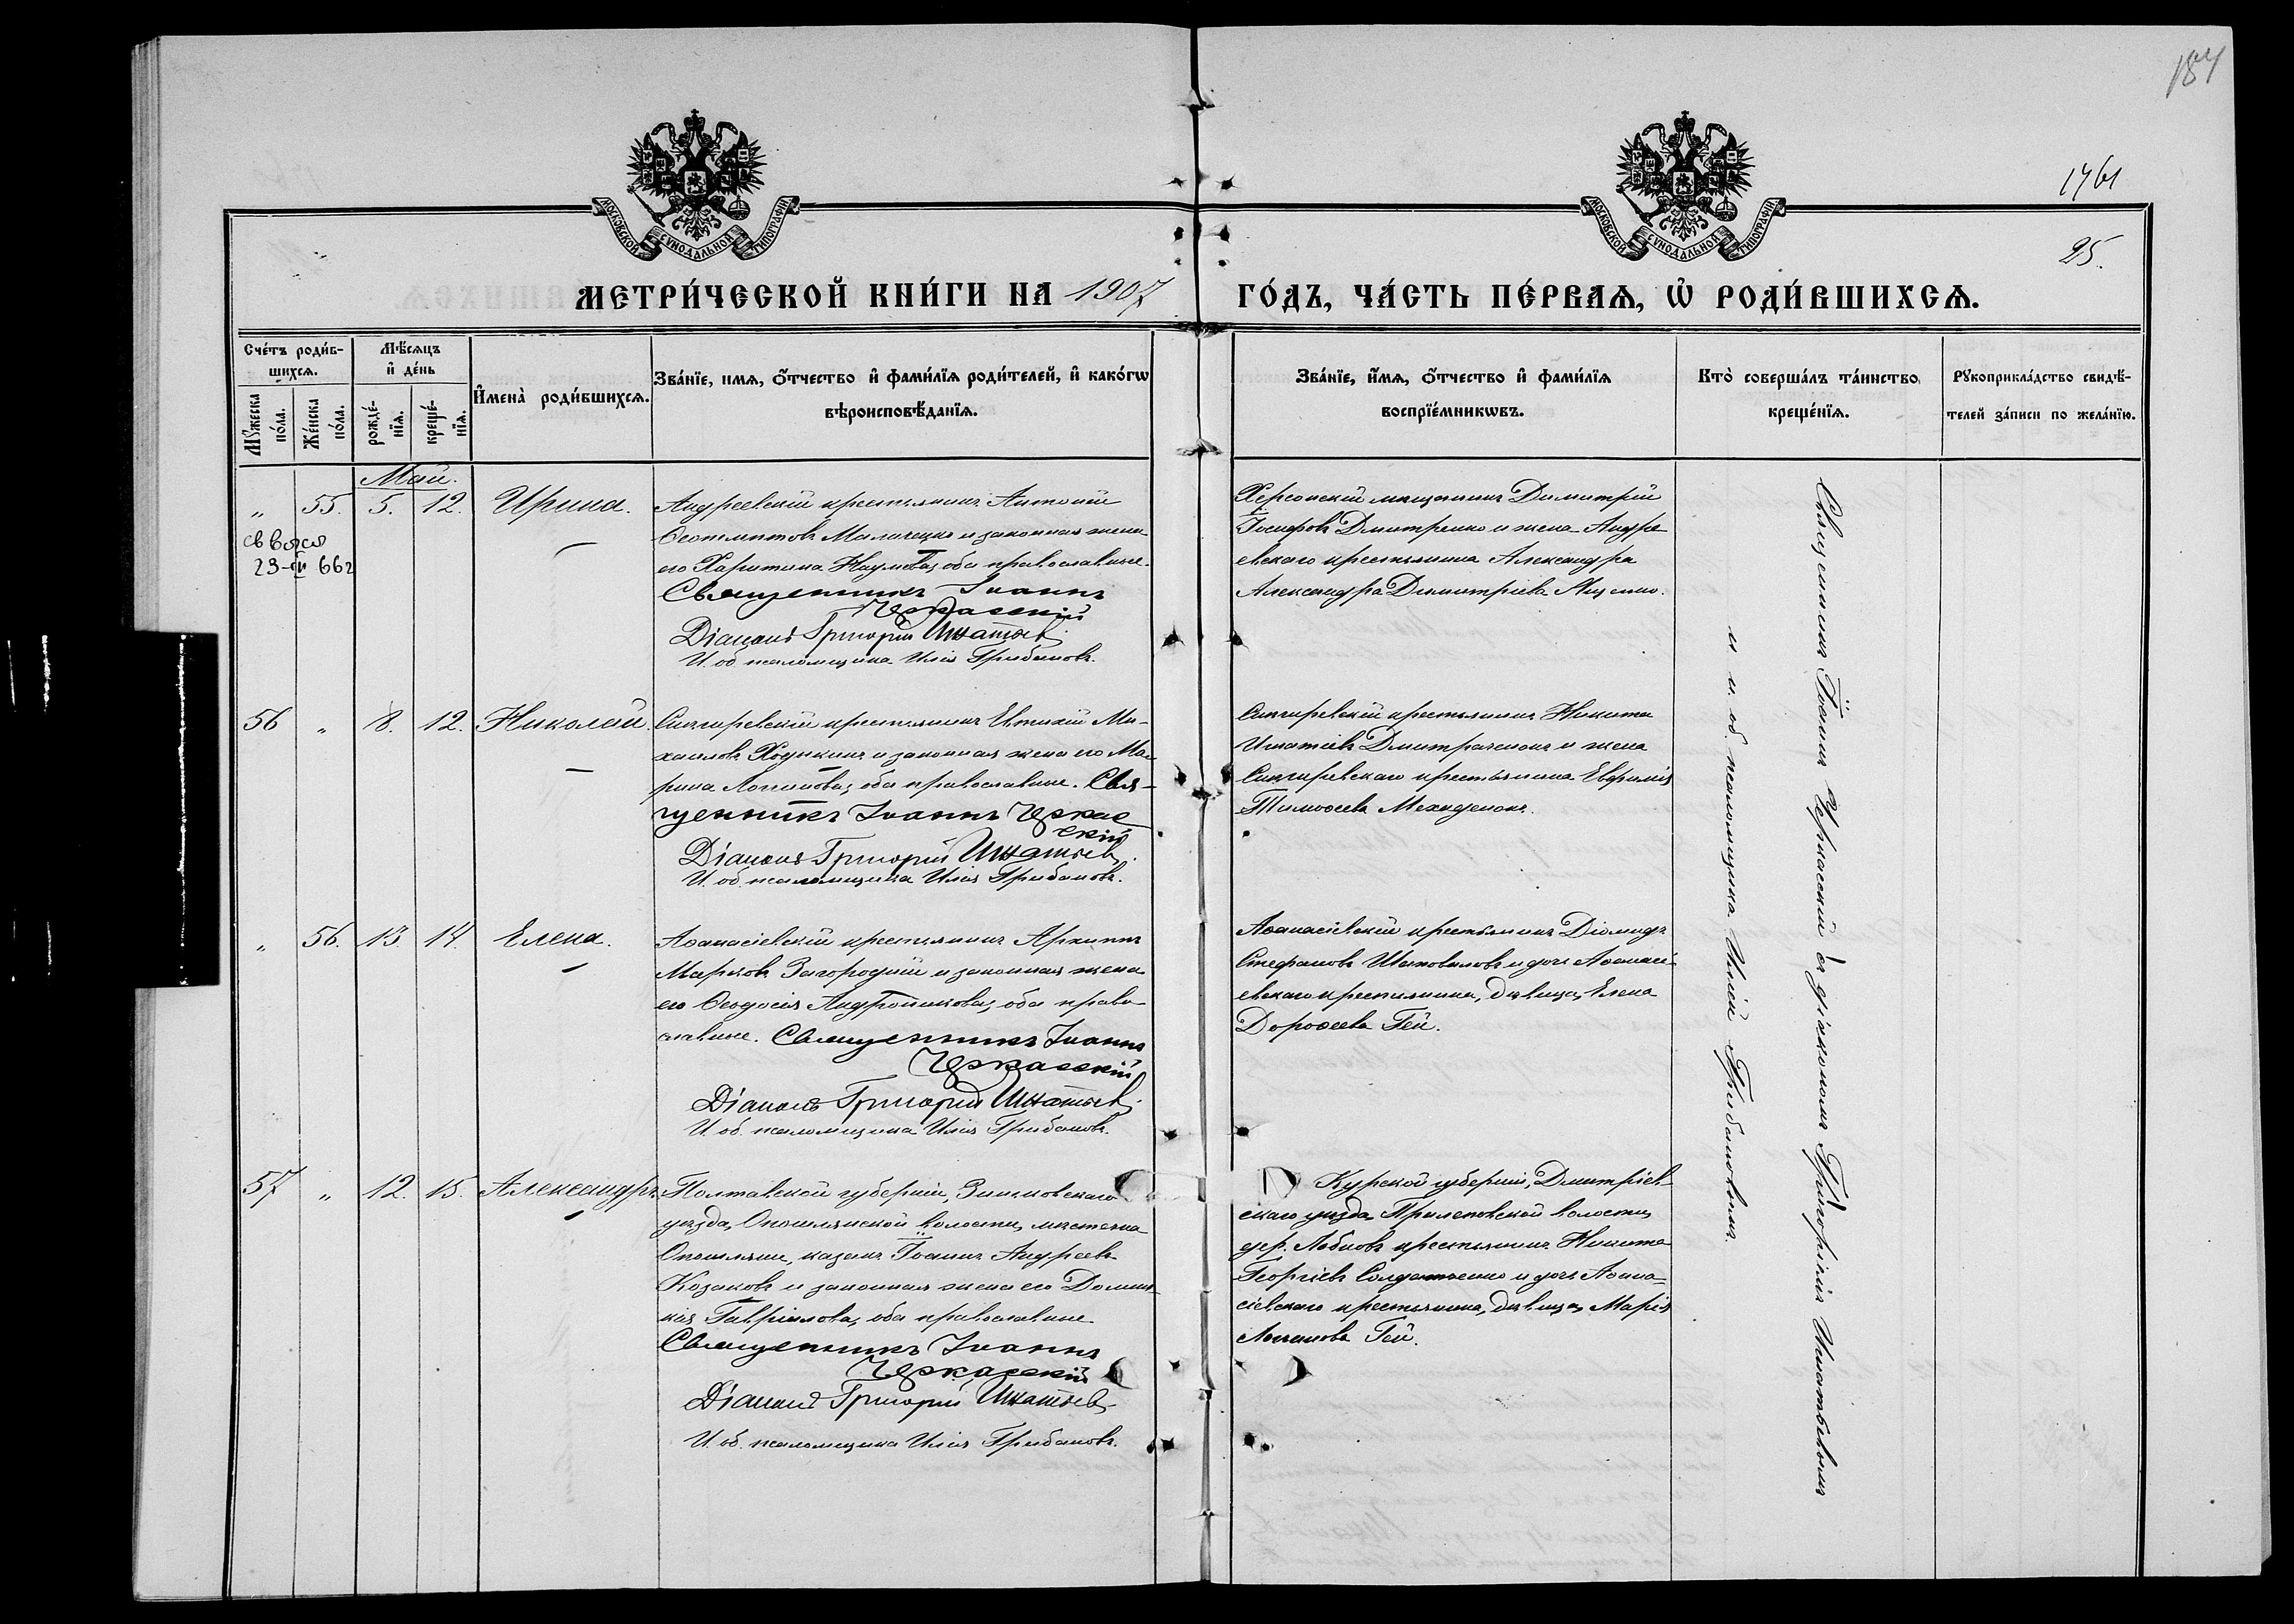 184
1761
25.
МОСКОВСКОЙ СУНОДАЛЬНОЙ ТИПОГРАФІИ
МОСКОВСКОЙ СУНОДАЛЬНОЙ ТИПОГРАФІИ
МЕТРИ́ЧЕСКОЙ КНИ́ГИ НА 1907 ГО́ДЪ, ЧА́СТЬ ПЕ́РВАѦ, Ѡ҆ РОДИ́ВШИХСѦ.
Сче́тъ роди́в-
шихсѧ.
Мꙋ́жеска по́ла.
Же́нска по́ла.
Мѣ́сѧцъ
и҆ де́нь
рожде́-нїѧ.
креще́-нїѧ.
И҆мена̀ роди́вшихсѧ.
Зва́нїе, имѧ, ѻ҆́тчество и҆ фами́лїѧ роди́телей, и҆ како́гѡ
вѣроисповѣ́данїѧ.
Зва́нїе, и҆́мѧ, ѻ҆́тчество и҆ фами́лїѧ
воспрїе́мникѡвъ.
Кто̀ соверша́лъ та́инство
креще́нїѧ.
Рꙋкоприкла́дство свидѣ́-
телей за́писи по жела́нїю.
Май.
„ 55. 5. 12. Ирина.
23- 66г
Андреевскій крестьянинъ Антоній
Ѳеоктистовъ и законная жена
его Харитина Наумова, оба православные.
Священникъ Іоаннъ
Черкасскій
Діаконъ Григорій Игнатьевъ.
И. об. псаломщика Илія Грибановъ.
Херсонскій мѣщанинъ Димитрій
Іосифовъ Дмитренко и жена Андре
евскаго крестьянина Александра
Александра Димитріева
56 „ 8. 12. Николай.
Снигиревскій крестьянинъ Евтихій Ми-
хаиловъ Ходыкинъ и законная жена его Ма-
рина Логинова, оба православные. Свя-
щенникъ Іоаннъ Черкас
скій
Діаконъ Григорій Игнатьевъ.
И. об. псаломщика Илія Грибановъ.
Снигиревскій крестьянинъ Никита
Игнатіевъ Дмитраченокъ и жена
Снигиревскаго крестьянина Евфимія
Тимоѳеева
„ 56. 13. 14. Елена.
Аѳанасіевскій крестьянинъ Архипъ
Марковъ Загородній и законная жена
его Ѳеодосія Андроникова, оба право
славные. Священникъ Іоаннъ
Черкасскій
Діаконъ Григорій Игнатьевъ.
И. об. псаломщика Илія Грибановъ.
Аѳанасіевскій крестьянинъ Діомидъ
Стефановъ Шаповаловъ и дочь Аѳанасі-
евскаго крестьянина, дѣвица, Елена
Дороѳеева Гей.
57 „ 12. 15. Александръ
Полтавской губерніи, Зиньковскаго
уѣзда, Опошлянской волости, мѣстечка
Опошляни, казакъ Іоаннъ Андреевъ
Козаковъ и законная жена его Домни-
кія Гавріилова, оба православные
Священникъ Іоаннъ
Черкасскій
Діаконъ Григорій Игнатьевъ
И. об. псаломщика Илія Грибановъ.
Курской губерніи, Дмитріев-
скаго уѣзда, Прилеповской волости,
дер. крестьянинъ Никита
Георгіевъ Солдатченко и дочь Аѳана-
сіевскаго крестьянина, дѣвица, Марія
Логинова Гей.
Священникъ Іоаннъ Черкасскій съ діакономъ Григоріемъ Игнатьевымъ
и и. об. псаломщика Иліей Грибановымъ.